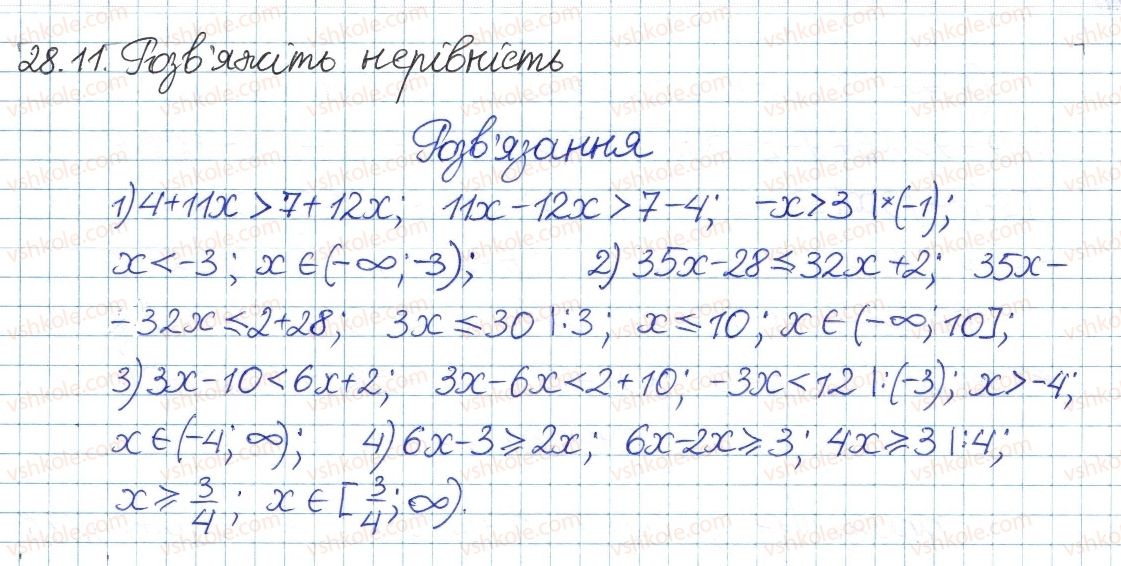 28.11. Розв'яжіть нерівність
Розв'язання
1) 4+11x > 7+12x; 11x-12x > 7-4; -x > 3 |*(-1);
x < -3; x ∈ (-∞; -3); 2) 35x-28 ≤ 32x+2; 35x-
-32x ≤ 2+28; 3x ≤ 30 |:3; x ≤ 10; x ∈ (-∞; 10];
3) 3x-10 < 6x+2; 3x-6x < 2+10; -3x < 12 |:(-3); x > -4;
x ∈ (-4; ∞); 4) 6x-3 ≥ 2x; 6x-2x ≥ 3; 4x ≥ 3 |:4;
x ≥ 3/4; x ∈ [3/4; ∞).
vshkole.com